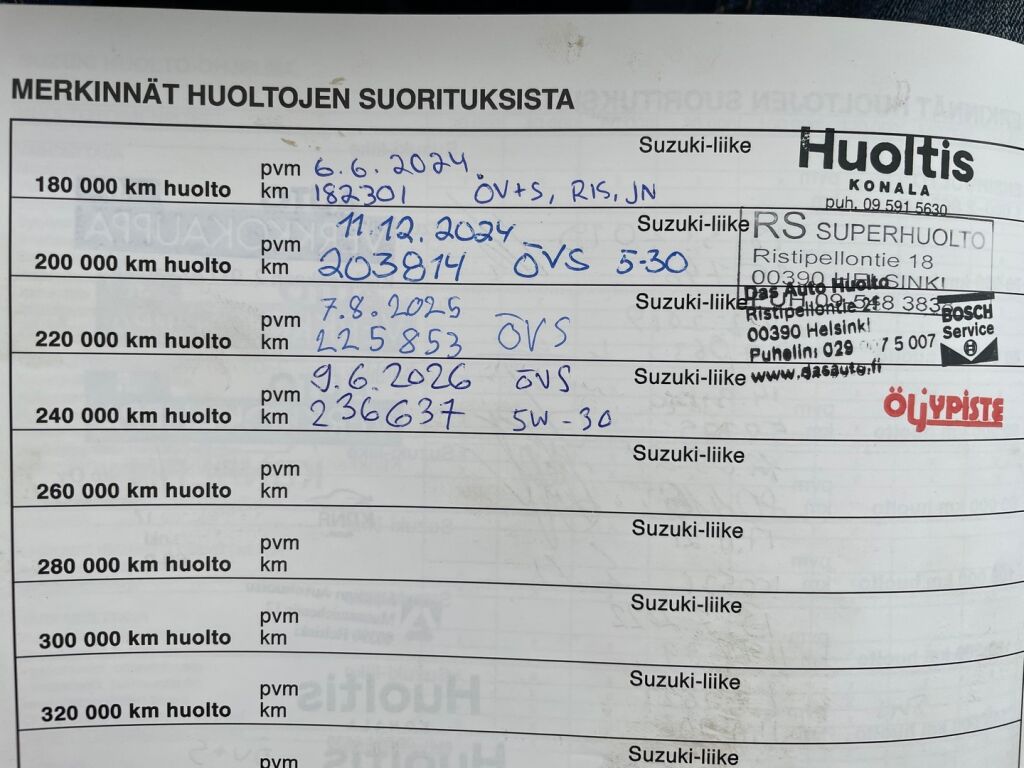 MERKINNÄT HUOLTOJEN SUORITUKSISTA
180 000 km huolto pvm 6.6.2024. Suzuki-liike
km 182301 ÖV+S, RIS, JN
Huoltis
KONALA
puh. 09 591 5630
200 000 km huolto pvm 11.12.2024 Suzuki-liike
km 203814 ÖVS 5-30
RS SUPERHUOLTO
Ristipellontie 18
00390 HELSINKI
PUH 09 548 383
220 000 km huolto pvm 7.8.2025 Suzuki-liike
km 225853 ÖVS
Das Auto Huolto
Ristipellontie 21
00390 Helsinki
Puhelin: 029 75 007
www.dasauto.fi
BOSCH
Service
240 000 km huolto pvm 9.6.2026 ÖVS Suzuki-liike
km 236637 5W-30
ÖLJYPISTE
260 000 km huolto pvm Suzuki-liike
km
280 000 km huolto pvm Suzuki-liike
km
300 000 km huolto pvm Suzuki-liike
km
320 000 km huolto pvm Suzuki-liike
km
pvm Suzuki-liike